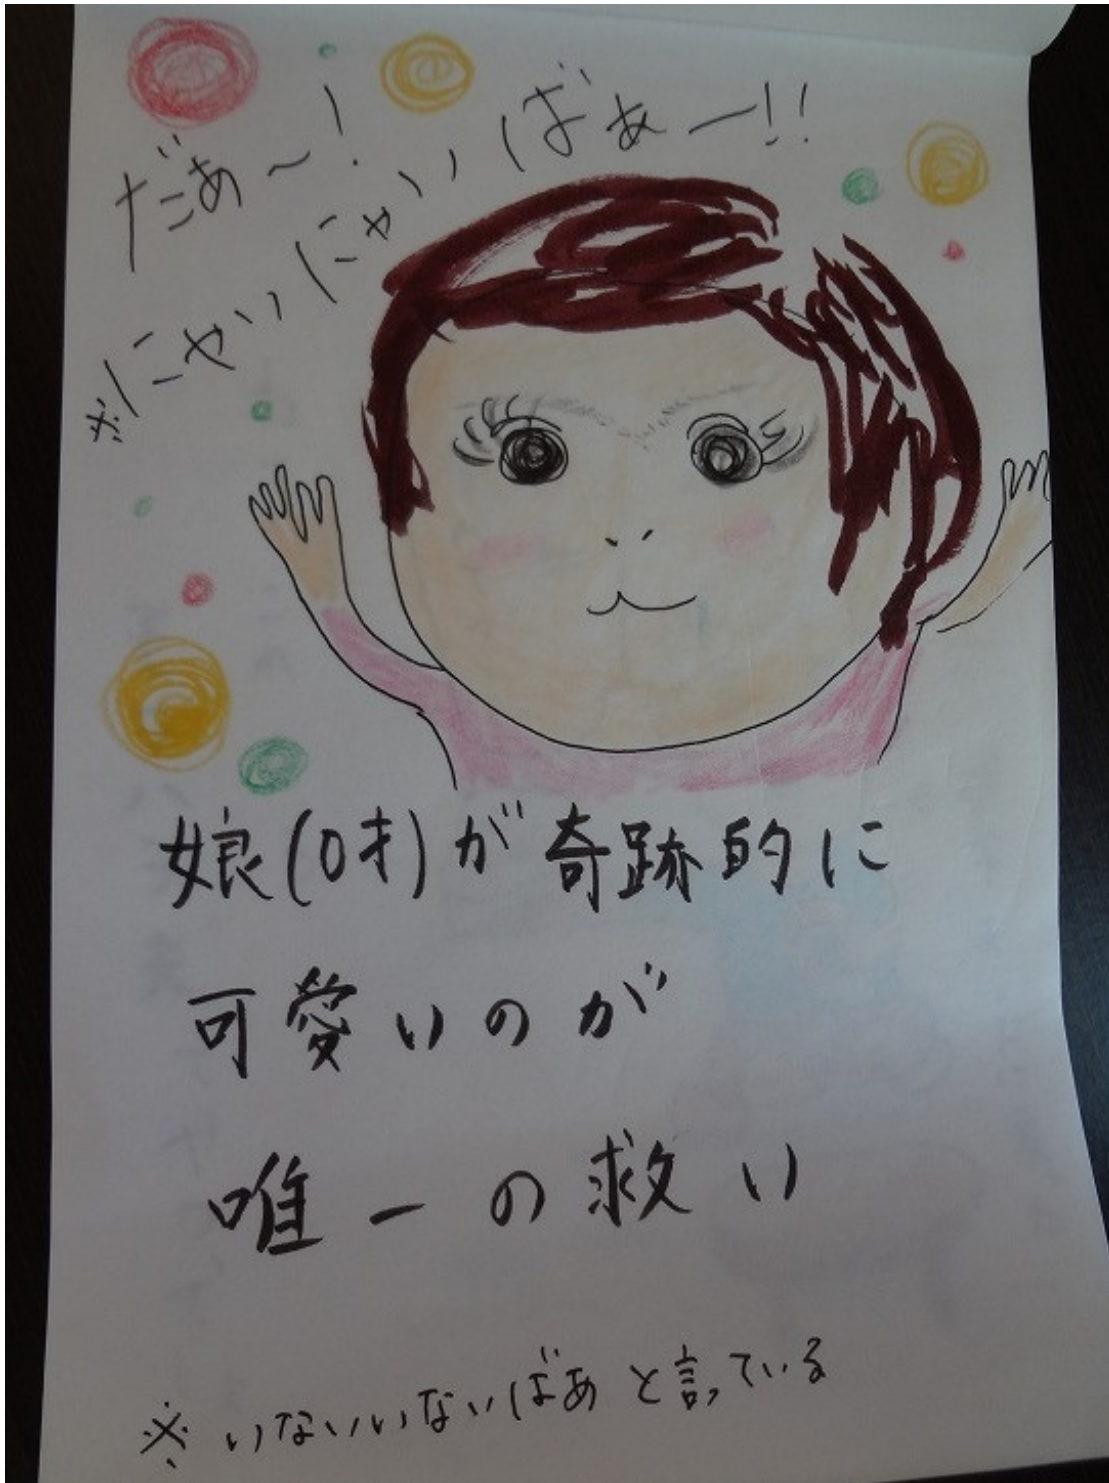 だぁ〜!
※にゃいにゃいばぁー!!
娘(0才)が奇跡的に
可愛いのが
唯一の救い
※いないいないばあと言っている